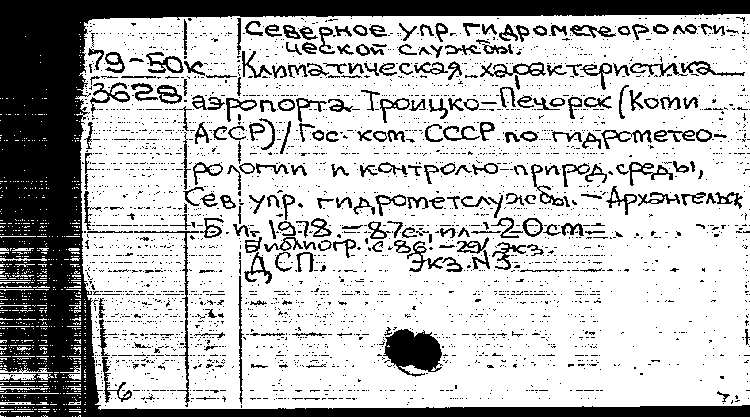 Северное упр. гидрометеорологи-
ческой службы.
79-50к Климатическая характеристика
3628 аэропорта Троицко-Печорск (Коми
АССР) / Гос. ком. СССР по гидрометео-
рологии и контролю природ. среды,
Сев. упр. гидрометслужбы. - Архангельск
Б.и. 1978. - 87с. ил. 20см.
Библиогр.: с. 86. - 29 экз.
ДСП. Экз. N3.
6